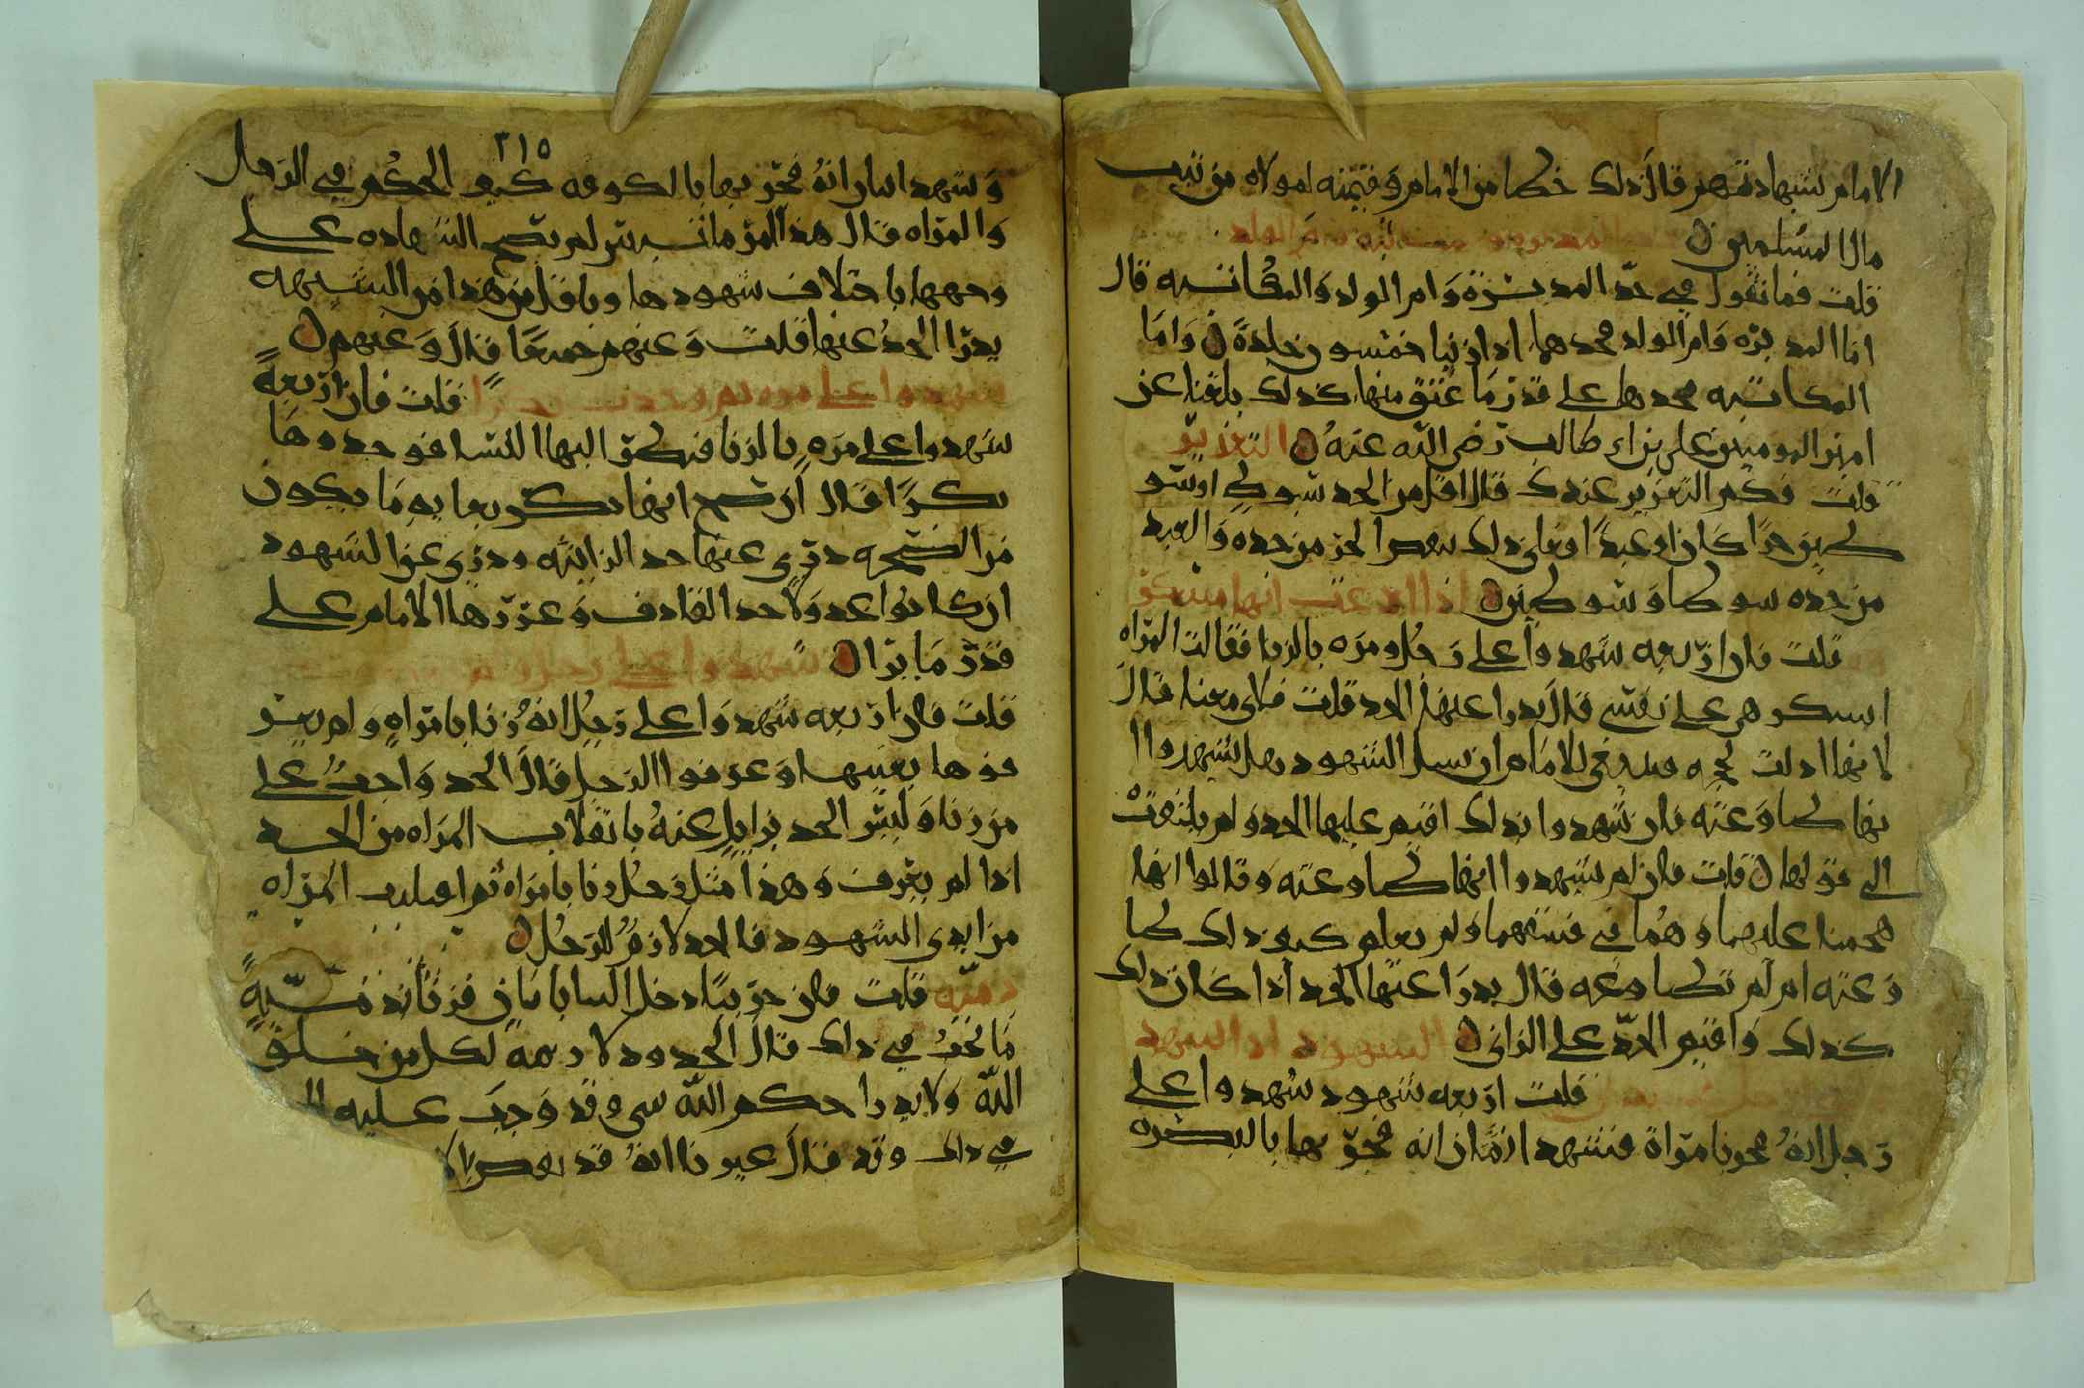 الامام بشهادتهم قال ذلك خطا من الامام وقيمته لمولاه من بيت
مال المسلمين المدبره
قلت فما تقول في حد المدبرة وام الولد والمكاتبه قال
اما المدبره وام الولد فحدهما اذا زنيا خمسون جلدة واما
المكاتبه فحدها على قدر ما عتق منها كذلك بلغنا عن
امير المومنين علي بن ابي طالب رضي الله عنه التعزير
قلت فكم التعزير عندك قال اقل من الحد بسوط او سو
طين حرا كان او عبدا ومعنى ذلك ينقص الحر من حده والعبد
من حده سوطا وسوطين اذا ادعت انها
قلت فان اربعه شهدوا على رجل ومره بالزنا فقالت المراه
استكرهني على نفسي قال يدرا عنها الحد قلت فلاي معنا قال
لانها ادلت بحجه فينبغي للامام ان يسل الشهود هل شهدوا ا
نها طاوعته فان شهدوا بذلك اقيم عليها الحد ولم يلتفت
الى قولها قلت فان لم يشهدوا انها طاوعته وقالوا انما
هجمنا عليهما وهما في فسقهما ولم نعلم كيف ذلك طا
وعته ام لم تطاوعه قال يدرا عنها الحد اذا كان ذلك
كذلك واقيم الحد على الزاني الشهود اذا اشهد
قلت اربعه شهود شهدوا على
رجل انه فجر بامراة فشهد اثنان انه فجر بها بالبصره
٣١٥
وشهد اثنان انه فجر بها بالكوفه كيف الحكم في الرجل
والمراه قال هذا امر ملتبس لم تصح الشهاده على
وجهها باختلاف شهودها وباقل من هذا من الشبهه
يدرا الحد عنها قلت وعنهم جميعا قال وعنهم
شهدوا على قلت فان اربعة
شهدوا على مره بالزنا فنظر اليها النسا فوجدوها
بكرا قال ان صح انها بكر بما به ما يكون
من الصحه دري عنها حد الزانيه ودري عن الشهود
ان كانوا عدولا حد القاذف وعزرها الامام على
قدر ما يرا شهدوا على رجل
قلت فان اربعه شهدوا على رجل انه زنا بامراه ولم يعر
فوها بعينها وعرفوا الرجل قال الحد واجب على
من زنا وليس الحد بزايل عنه بانفلات المراه من الحد
اذا لم تعرف وهذا مثل رجل زنا بامراه ثم افلتت المراه
من ايدي الشهود فالحد لازم للرجل
قلت فان حربيا دخل الينا بامان فزنا بذميه
ما يجب في ذلك قال الحدود لازمة لكل من خلق
الله ولا يدرا حكم الله شي وقد وجب عليه
في ذلك وقد قال غيرنا انه قد نقض